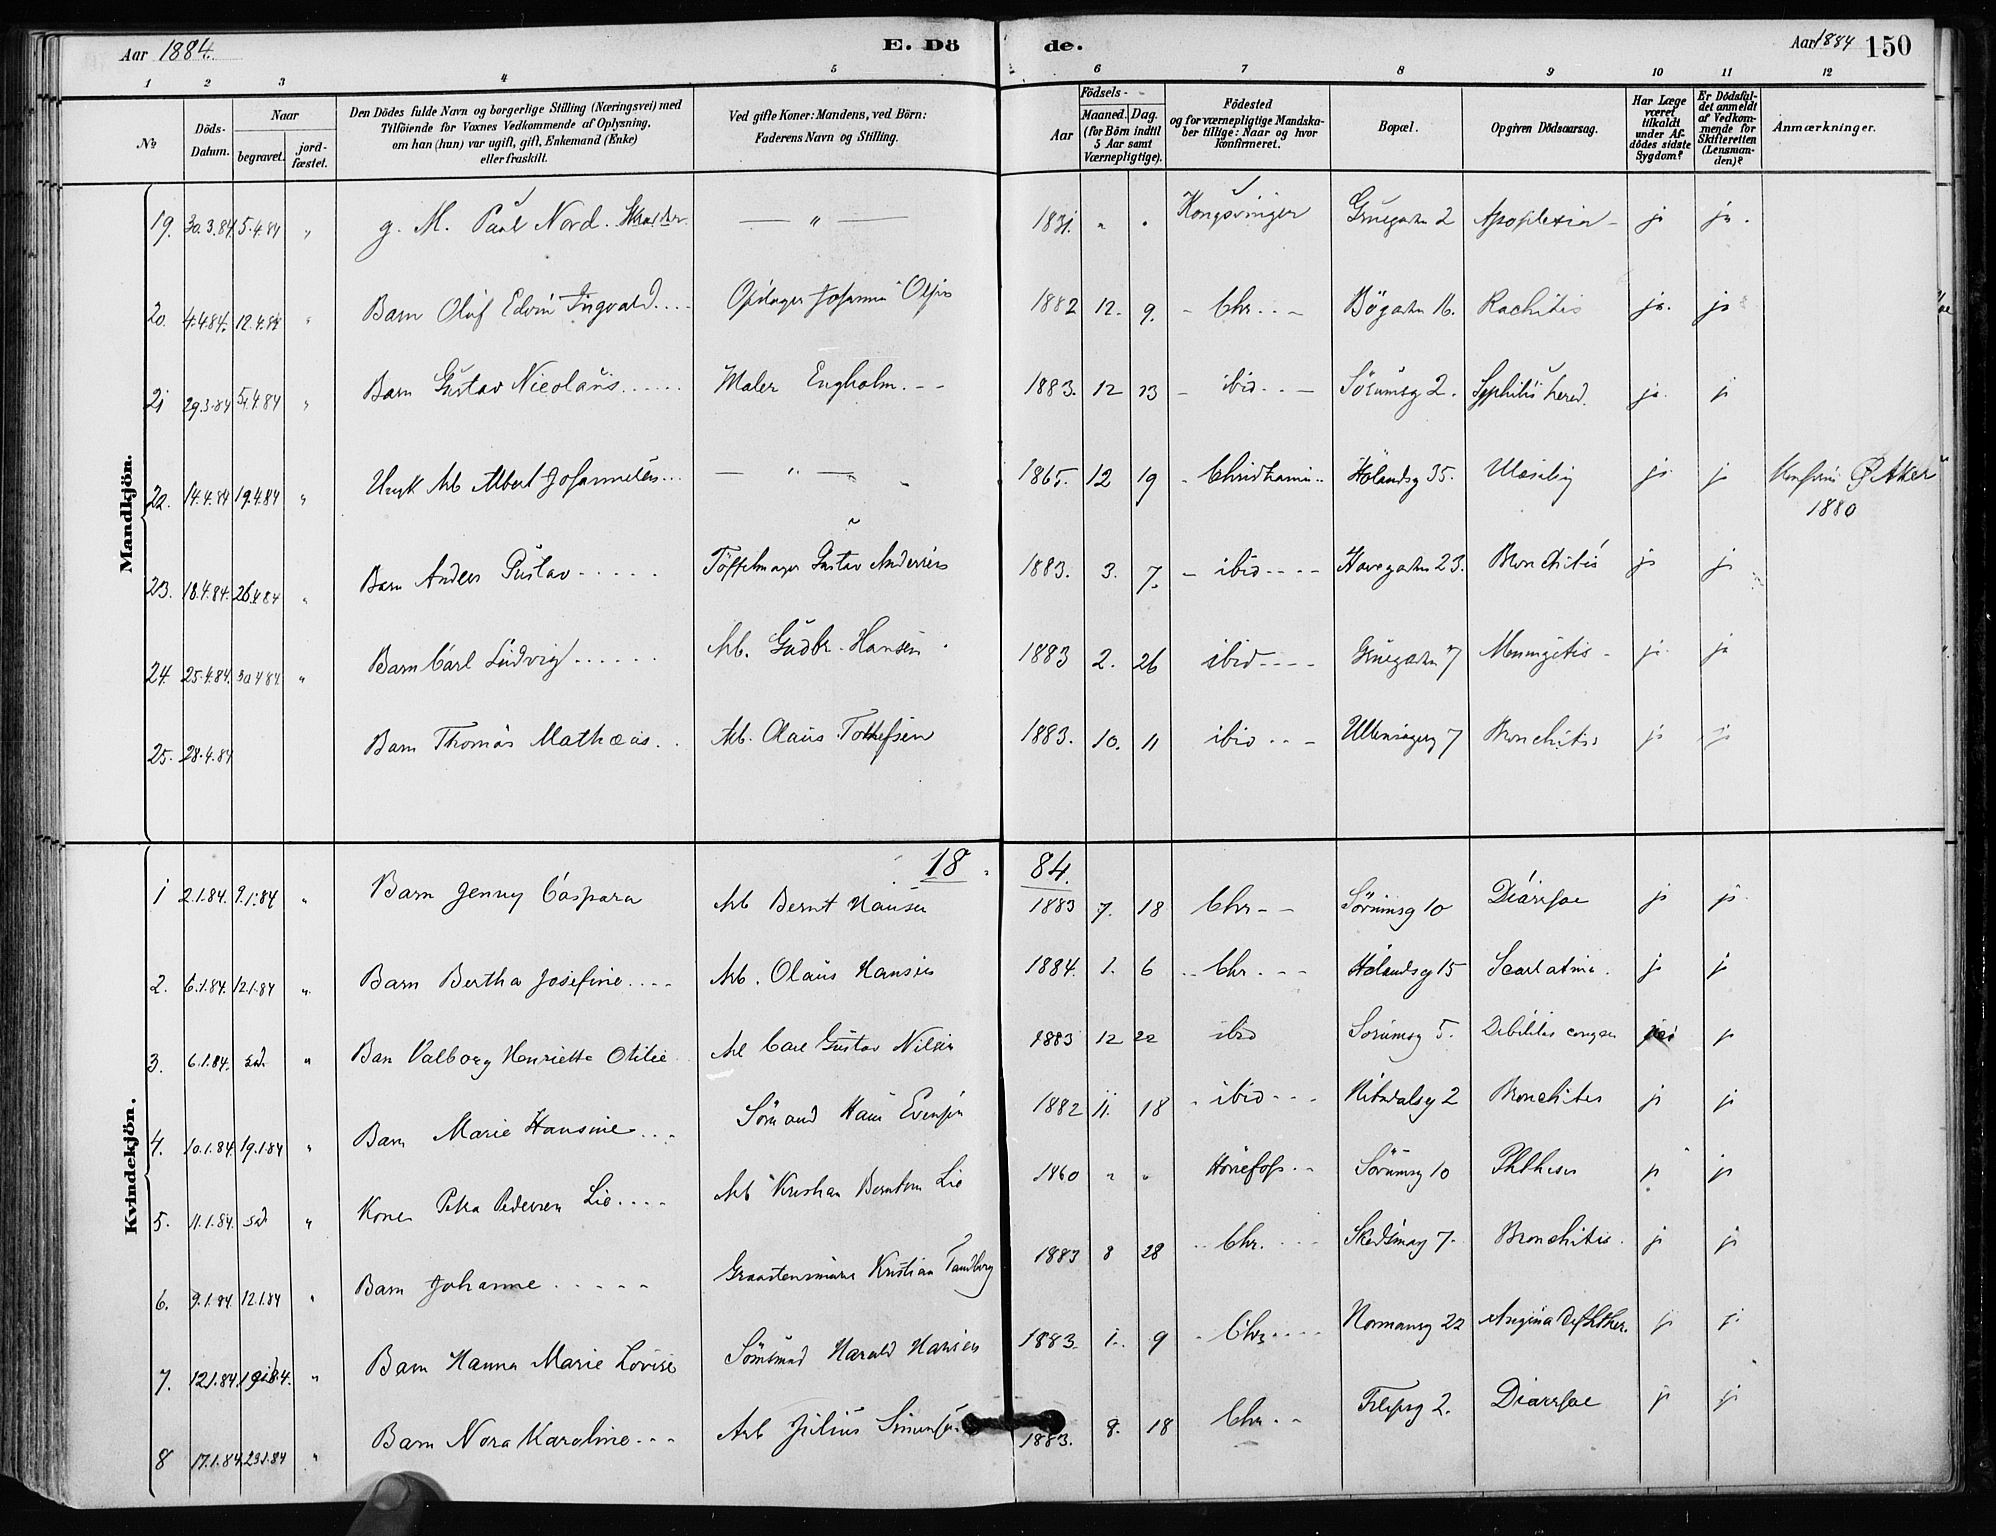 Aar 1884. E. Dö de. Aar 1884 150
1 2 3 4 5 6 7 8 9 10 11 12
No Döds-Datum. Naar begravet. jord-fæstet. Den Dödes fulde Navn og borgerlige Stilling (Næringsvei) med Tilföiende for Voxnes Vedkommende af Oplysning, om han (hun) var ugift, gift, Enkemand (Enke) eller fraskilt. Ved gifte Koner: Mandens, ved Börn: Faderens Navn og Stilling. Födsels- Aar Maaned. Dag. (for Börn indtil 5 Aar samt Værnepligtige). Födested og for værnepligtige Mandskaber tillige: Naar og hvor konfirmeret. Bopæl. Opgiven Dödsaarsag. Har Læge været tilkaldt under Afdödes sidste Sygdom? Er Dödsfaldet anmeldt af Vedkommende for Skifteretten (Lensmanden)? Anmærkninger.
Mandkjön.
19. 30.3.84. 5.4.84 " g. M. Paul Nord. — " — 1831. " " Kongsvinger Gruegaden 2 Apoplexia ja ja.
20. 4.4.84. 12.4.84 " Barn Oluf Edvin Ingvald... Johanna Olsen 1882 12. 9. Chr. Bögaden 16. Rachitis ja. ja
21 29.3.84 5.4.84 " Barn Gustav Nicolaus... Maler Engholm. 1883. 12 23 ibid Sörumsg 2. Syphilis hered. ja. ja
22. 14.4.84 19.4.84 " Ungk Arb Albert Johannesen... — " — 1865. 12 19 Christiania Hölandsg 35. ja ja Konfirm Ø Aker 1880
23. 18.4.84. 26.4.84 " Barn Anders Gustav..... Töffelmager Gustav Andersen 1883. 3. 7. ibid Havegaden 23. Bronchitis ja ja
24. 25.4.84. 30.4.84. " Barn Carl Ludvig...... Arb. Gudbr. Hansen 1883 2. 26 ibid Gruegaden 7 Meningitis ja ja
25. 28.4.84 Barn Thomas Mathæus.. Arb. Olaus Tollefsen 1883. 10. 11 ibid Ullensagerg 7 Bronchitis ja ja
18 84.
Kvindekjön.
1 2.1.84. 9.1.84 " Barn Jenny Caspara Arb Bernt Hansen 1883 7. 18 Chr Sörumsg 10 Diarrhoe ja ja
2. 6.1.84. 12.1.84 " Barn Bertha Josefine.... Arb. Olaus Hansen 1884. 1. 6 Chr. Hölandsg 15 Scarlatina. ja ja
3. 6.1.84. " Barn Valborg Henriette Otilie Arb Carl Gustav Nilsen 1883 12 22 ibid Sorumsg 5. Debilitas congen nei ja
4. 10.1.84. 19.1.84 " Barn Marie Hansine... Sömand Hans Evensen 1882 11. 18 ibid Nitedalsg 2 Bronchitis ja ja
5. 11.1.84. " Kone Petra Pedersen Lie.... Arb Kristian Berntsen Lie 1860 " " Hönefoss Sörumsg 10 Phthisis ja ja
6. 9.1.84. 12.1.84 " Barn Johanne..... Graastensmurer Kristian Tandberg 1883 8 28 Chr. Skedsmog 7. Bronchitis. ja ja
7. 12.1.84. 19.1.84. " Barn Hanna Marie Lovise Sömand Harald Hansen 1883. 1. 9 Chr. Normansg 22 Angina Diphther. ja ja
8 17.1.84. 23.1.84 " Barn Nora Karoline... Arb Julius Simensen 1883. 8. 18 Chr. 2. Diarrhoe ja ja